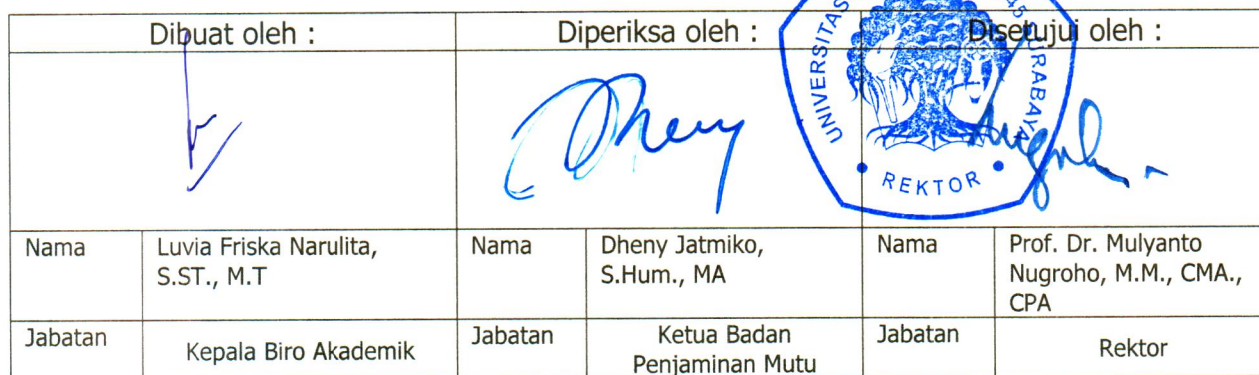 Dibuat oleh :
Diperiksa oleh :
Disetujui oleh :
UNIVERSITAS
45 SURABAYA
REKTOR
Dheny
Nama
Luvia Friska Narulita,
S.ST., M.T
Nama
Dheny Jatmiko,
S.Hum., MA
Nama
Prof. Dr. Mulyanto
Nugroho, M.M., CMA.,
CPA
Jabatan
Kepala Biro Akademik
Jabatan
Ketua Badan
Penjaminan Mutu
Jabatan
Rektor